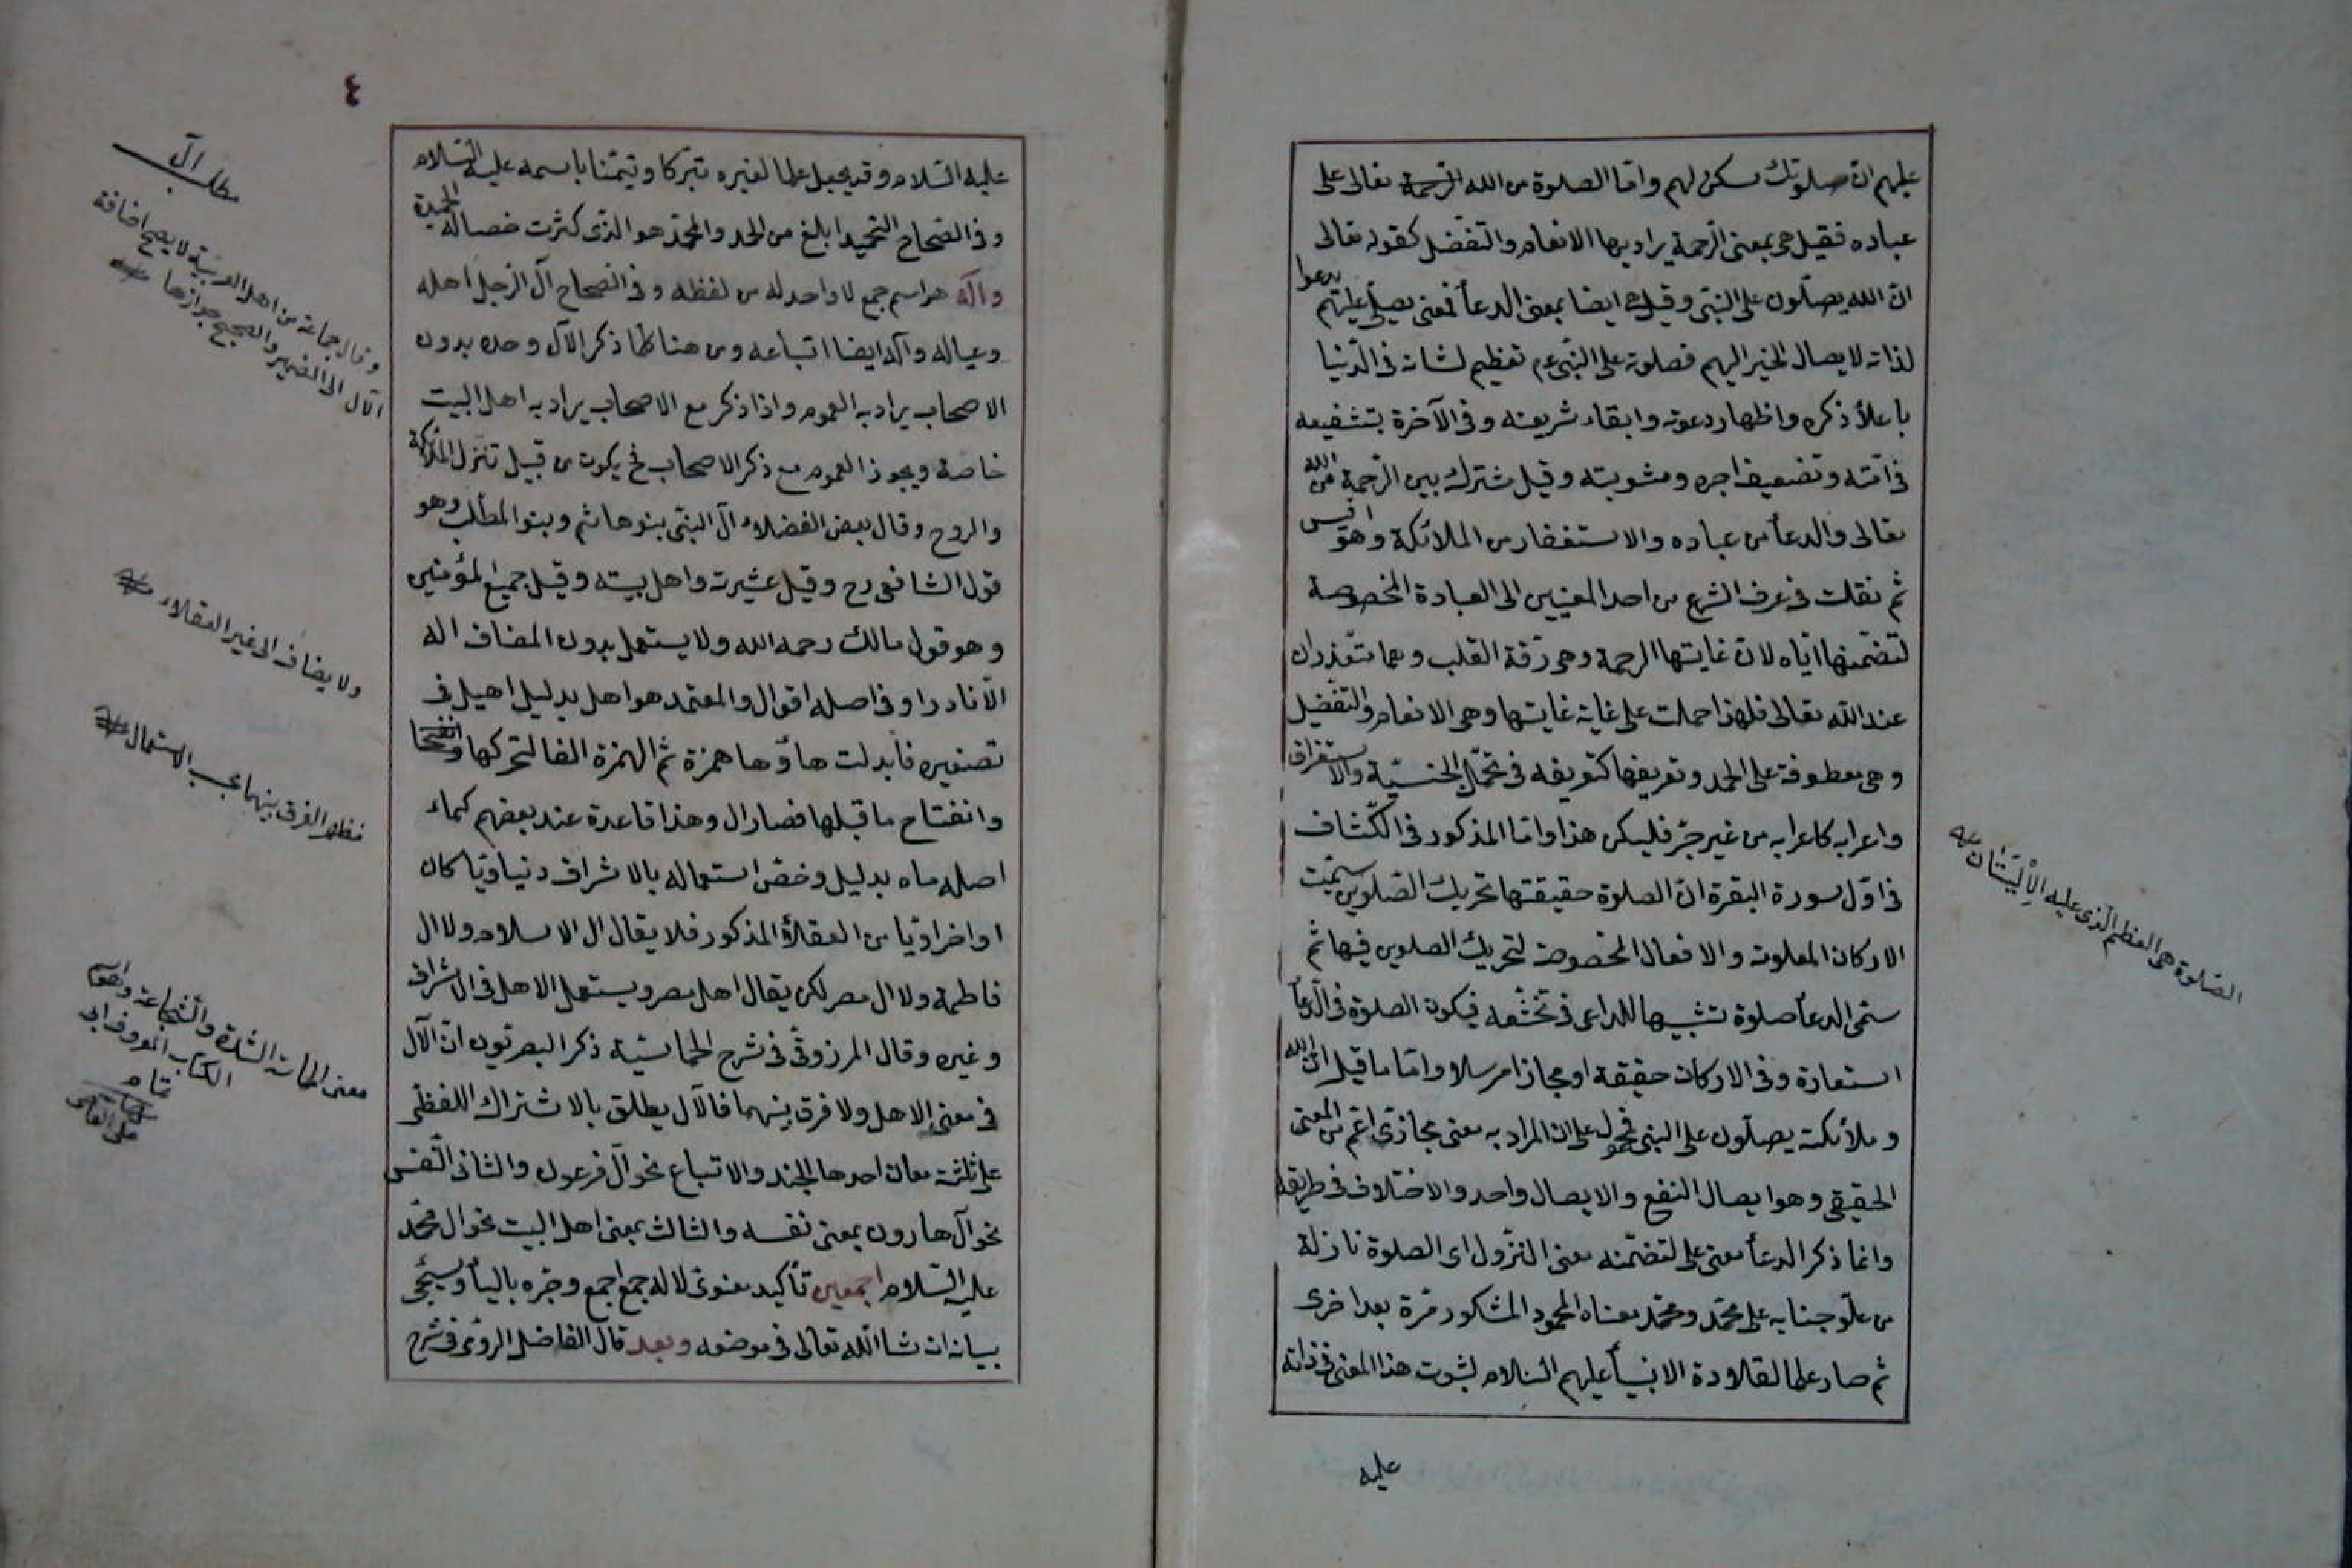 عليهم ان صلوتك سكن لهم واما الصلوة من الله الرحمة تعالى على
عباده فقيل هى بمعنى الرحمة يراد بها الانعام والتفضل كقوله تعالى
ان الله يصلون على النبى وقيل هى ايضا بمعنى الدعأ فمعنى يصلى عليهم يدعوا
لذاته لايصال الخير اليهم فصلوته على النبى عم تعظيم لشانه فى الدنيا
باعلأ ذكره واظهار دعوته وابقاء شريعته وفى الآخرة بتشفيعه
فى امته وتضعيف اجره ومثوبته وقيل مشترك بين الرحمة من الله
تعالى والدعأ من عباده والاستغفار من الملائكة وهو اقيس
ثم نقلت فى عرف الشرع من احد المعنيين الى العبادة المخصوصة
لتضمنها اياه لان غايتها الرحمة وهى رقة القلب وهما متعذران
عند الله تعالى فلهذا حملت على غاية غايتها وهى الانعام والتفضيل
وهى معطوفة على الحمد وتعريفها كتعريفه فى تحمل الجنسية والاستغراق
واعرابه كاعرابه من غير جر فليكن هذا واما المذكور فى الكشاف
فى اول سورة البقرة ان الصلوة حقيقتها تحريك الصلوين سميت
الاركان المعلومة والافعال المخصوصة لتحريك الصلوين فيها ثم
سمى الدعأ صلوة تشبيها للداعى فى تخشعه فيكون الصلوة فى الدعأ
استعارة وفى الاركان حقيقة او مجازا مرسلا واما ما قيل ان الله
وملائكته يصلون على النبى فمحمول على ان المراد به معنى مجازى اعم من المعنى
الحقيقى وهو ايصال النفع والايصال واحد والاختلاف فى طريقه
وانما ذكر الدعأ معنى على لتضمنه معنى النزول اى الصلوة نازلة
من علو جنابه على محمد ومحمد معناه المحمود المشكور مرة بعد اخرى
ثم صار علما لقلادة الانبيأ عليهم السلام لثبوت هذا المعنى فى ذاته
عليه
الصلوة هى العظم الذى عليه الأليتان
٤
عليه السلام وقد يجعل علما لغيره تبركا وتيمنا باسمه عليه السلام
وفى الصحاح التحميد ابلغ من الحمد والمحمد هو الذى كثرت خصاله الحميدة
وآله هو اسم جمع لا واحد له من لفظه وفى الصحاح آل الرجل اهله
وعياله وآله ايضا اتباعه ومن هنا كلما ذكر الآل وحده بدون
الاصحاب يراد به العموم واذا ذكر مع الاصحاب يراد به اهل البيت
خاصة ويجوز العموم مع ذكر الاصحاب فح يكون من قبيل تنزل الملائكة
والروح وقال بعض الفضلاء آل النبى بنو هاشم وبنو المطلب وهو
قول الشافعى رح وقيل عشيرته واهل بيته وقيل جميع المؤمنين
وهو قول مالك رحمه الله ولا يستعمل بدون المضاف اله
الا نادرا وفى اصله اقوال والمعتمد هو اهل بدليل اهيل فى
تصغيره فابدلت هاؤها همزة ثم الهمزة الفا لتحركها
وانفتاح ما قبلها فصار ال وهذا قاعدة عند بعضهم كماء
اصله ماه بدليل وخص استعماله بالاشراف دنياويا كان
او اخراويا من العقلأ المذكور فلا يقال ال الاسلام ولا ال
فاطمة ولا ال مصر لكن يقال اهل مصر ويستعمل الاهل فى الاشراف
وغيره وقال المرزوقى فى شرح الحماسية ذكر البصريون ان الآل
فى معنى الاهل ولا فرق بينهما فالآل يطلق بالاشتراك اللفظى
على ثلثة معان احدها الجند والاتباع نحو آل فرعون والثانى النفس
نحو آل هارون بمعنى نفسه والثالث بمعنى اهل البيت نحو ال محمد
عليه السلام اجمعين تأكيد معنوى لاله جمع اجمع وجره باليأ وسيجئ
بيانه ان شا الله تعالى فى موضعه وبعد قال الفاضل الرومى فى شرح
مطلب آل
وقال جماعة من اهل العربية لا يصح اضافة
الآل الى الضمير والصحيح جوازها
ولا يضاف الى غير العقلاء
فظهر الفرق بينهما بحسب الاستعمال
معنى الحماسة الشدة والشجاعة
الكتاب المعروف ابى
تمام
على القارى